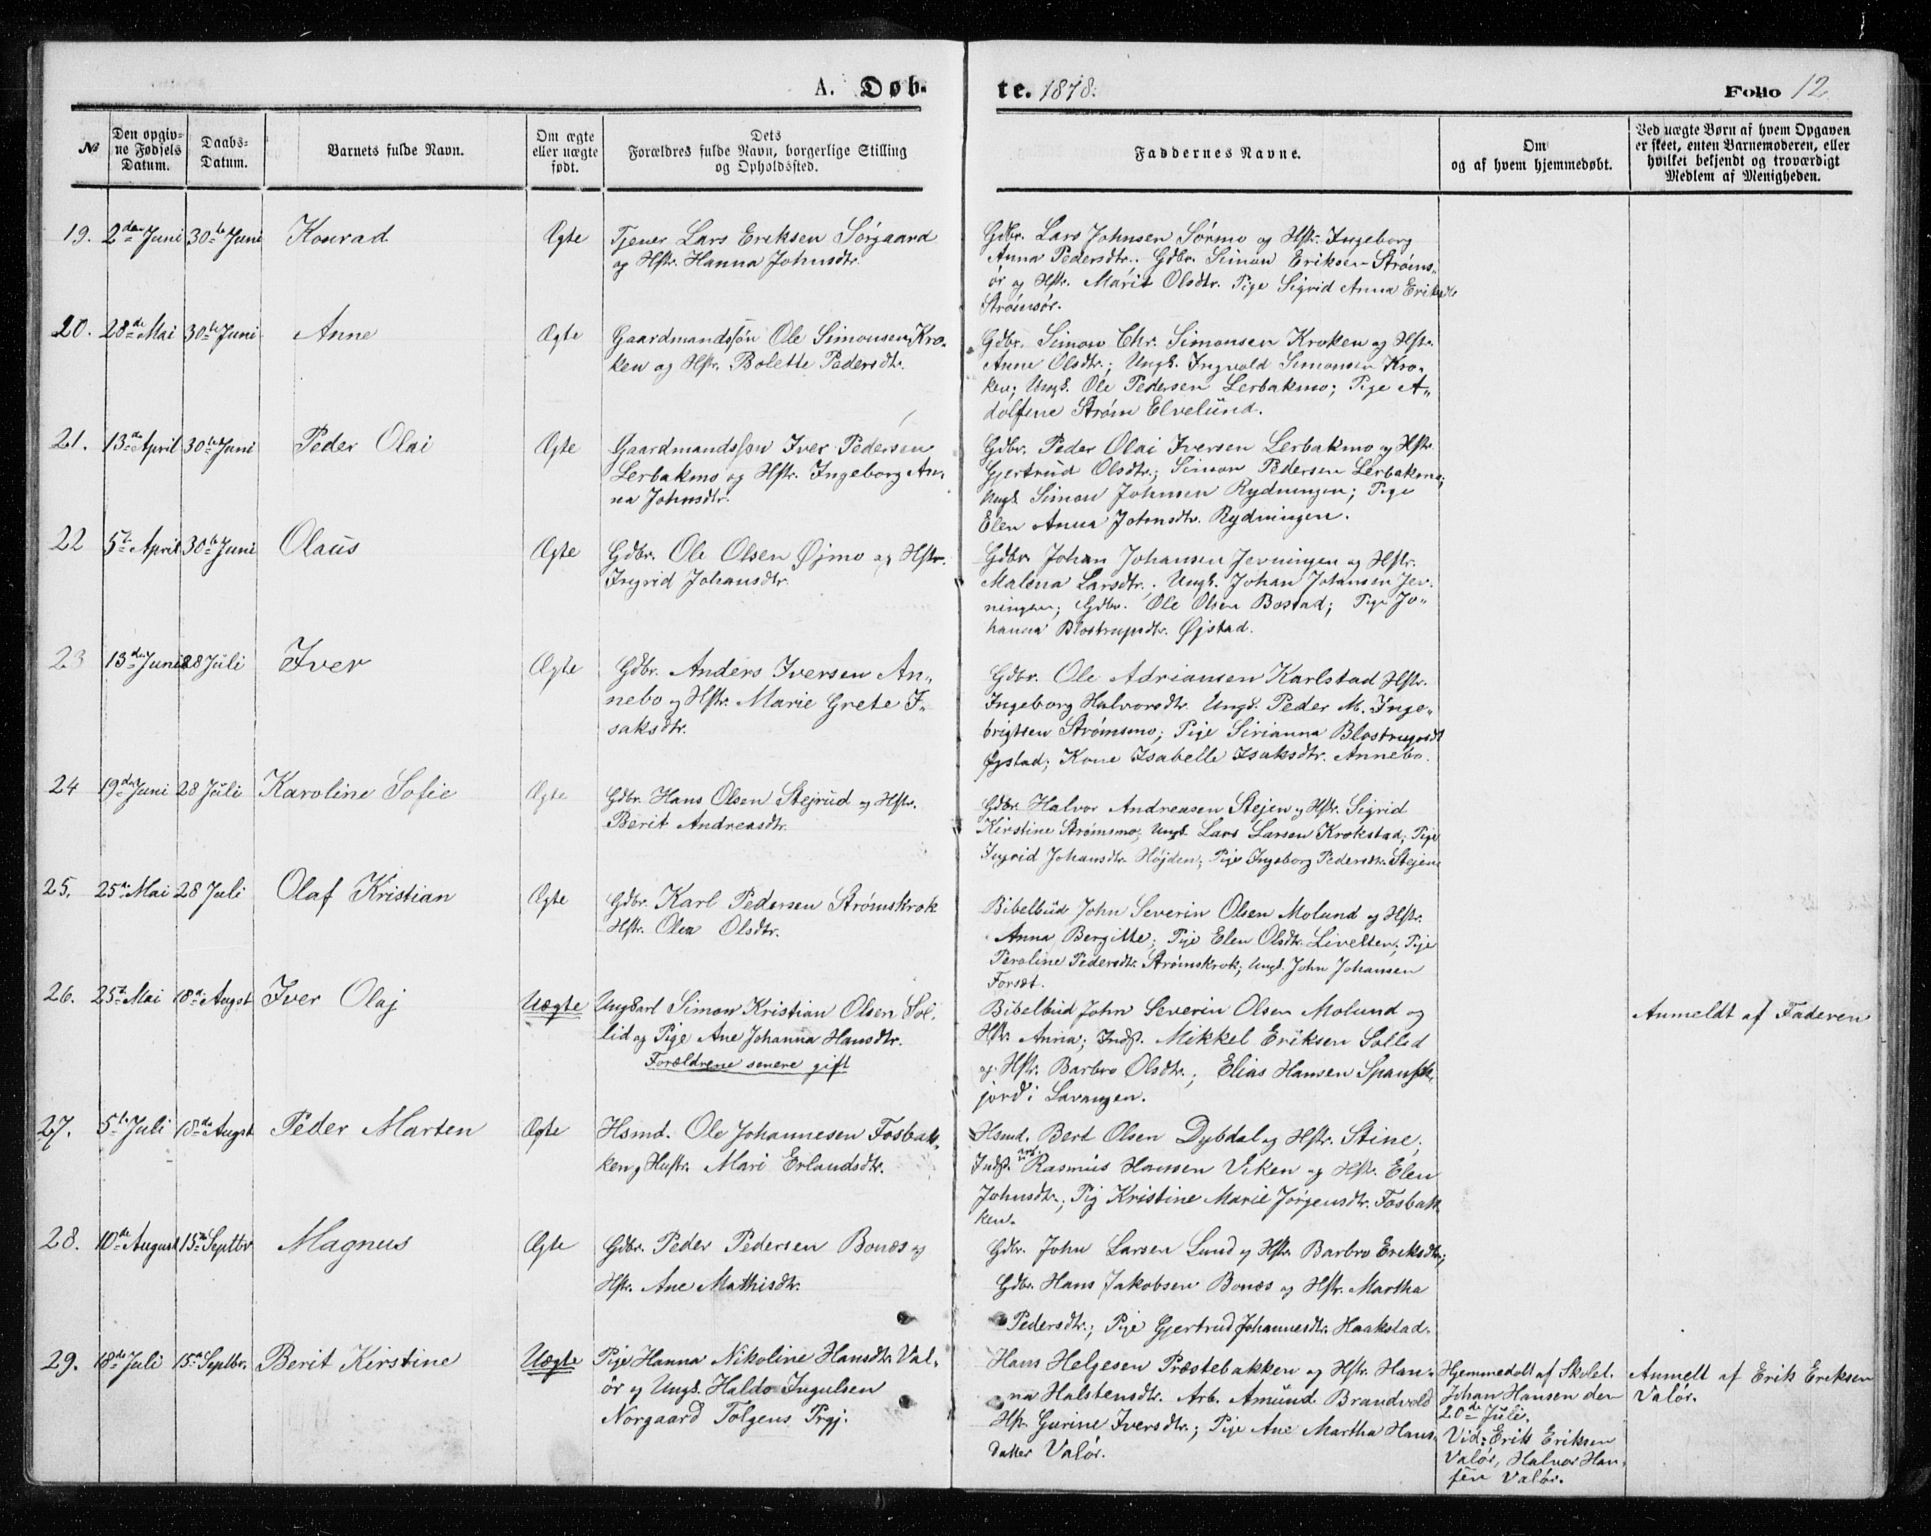 A. Døb-
te. 1878. Folio 12
№
Den opgiv-
ne Fødsels
Datum.
Daabs-
Datum.
Barnets fulde Navn.
Om ægte
eller uægte
født.
Dets
Forældres fulde Navn, borgerlige Stilling
og Opholdssted.
Faddernes Navne.
Om
og af hvem hjemmedøbt.
Ved uægte Børn af hvem Opgaven
er skeet, enten Barnemoderen, eller
hvilket bekjendt og troværdigt
Medlem af Menigheden.
19. 2den Juni 30te Juni Konrad Ægte
Tjener Lars Eriksen Sørgaard
og Hstr. Hanna Johnsdtr.
Gdbr. Lars Johnsen Sørmo og Hstr. Ingeborg
Anna Pedersdtr. Gdbr. Simon Eriksen Strøms-
ør og Hstr. Marit Olsdtr. Pige Sigrid Anna Eriksdtr
Strømsør.
20. 28de Mai 30te Juni Anne Ægte
Gaardmandssøn Ole Simonsen Kro-
ken og Hstr. Bolette Pedersdtr.
Gdbr. Simon Chr. Simonsen Kroken og Hstr.
Anne Olsdtr; Ungk. Ingvald Simonsen Kro-
ken; Ungk. Ole Pedersen Lerbakmo; Pige A-
dolfine Strøm Elvelund.
21. 13de April 30te Juni Peder Olai Ægte
Gaardmandssøn Iver Pedersen
Lerbakmo og Hstr. Ingeborg An-
na Johnsdtr.
Gdbr. Peder Olai Iversen Lerbakmo og Hstr.
Gjertrud Olsdtr.; Simon Pedersen Lerbakmo;
Ungk. Simon Johnsen Rydningen; Pige
Elen Anna Johnsdtr. Rydningen.
22 5te April 30te Juni Olaus Ægte
Gdbr. Ole Olsen Øjmo og Hstr.
Ingrid Johansdtr.
Gdbr. Johan Johansen Jerningen og Hstr.
Malena Larsdtr. Ungk. Johan Johansen Jer-
ningen; Gdbr. Ole Olsen Bostad; Pige Jo-
hanna Blostrupsdtr. Øjstad.
23 13de Juni 28 Juli Iver Ægte
Gdbr. Anders Iversen An-
nebo og Hstr. Marie Grete I-
saksdtr.
Gdbr. Ole Adriansen Karlstad Hstr.
Ingeborg Halvorsdtr. Ungk. Peder M. Inge-
brigtsen Strømsmo; Pige Sirianna Blostrupsdt
Øjstad; Kone Isabelle Isaksdtr. Annebo.
24 19de Juni 28 Juli Karoline Sofie Ægte
Gdbr. Hans Olsen Stejrud og Hstr.
Berit Andreasdtr.
Gdbr. Halvor Andreasen Stejen og Hstr. Sigrid
Kirstine Strømsmo; Ungk. Lars Larsen Krokstad; Pige
Ingrid Johansdtr. Højden; Pige Ingeborg Pedersdtr. Stejen
25. 25de Mai 28 Juli Olaf Kristian Ægte
Gdbr. Karl Pedersen Strømskrok
Hstr. Olea Olsdtr.
Bibelbud John Severin Olsen Molund og Hstr.
Anna Bergitte; Pige Elen Olsdtr. Livelten, Pige
Peroline Pedersdtr. Strømskrok; Ungk. John Johansen
Forsæt.
26. 25de Mai 18de Augst Iver Olaj Uægte
Ungkarl Simon Kristian Olsen Sol-
lid og Pige Ane Johanna Hansdtr.
Forældrene senere gift
Bibelbud John Severin Olsen Molund og
Hstr. Anna; Indst. Mikkel Eriksen Sollid
og Hstr. Barbro Olsdtr.; Elias Hansen Spansk-
jord i Lavangen.
Anmeldt af Faderen
27. 5te Juli 18de Augst Peder Marten Ægte
Hsmd. Ole Johannesen Fosbak-
ken og Hustr. Mari Erlandsdtr.
Hsmd. Bert Olsen Dybdal og Hstr. Stine;
Indst. Rasmus Hansen Viken og Hstr. Elen
Johnsdtr.; Pig Kristine Marie Jørgensdtr. Fosbak-
ken.
28. 10de August 15de Septbr Magnus Ægte
Gdbr. Peder Pedersen Bonæs og
Hstr. Ane Mathisdtr.
Gdbr. John Larsen Lund og Hstr. Barbro Eriksdtr;
Gdbr. Hans Jakobsen Bonæs og Hstr. Martha
Pedersdtr.; Pige Gjertrud Johannesdtr. Haakstad.
29. 18de Juli 15de Septbr. Berit Kirstine Uægte
Pige Hanna Nikoline Hansdtr. Val-
ør og Ungk. Haldo Ingulsen
Norgaard Tolgens Prgj.
Hans Helgesen Præstebakken og Hstr. Han-
na Halstensdtr. Arb. Amund Brandvold
Hstr. Gurine Iversdtr.; Pige Ane Martha Hans-
datter Valør.
Hjemmedøbt af Skolel.
Johan Hansen den
20de Juli.
Vid: Erik Eriksen
Valør, Halvor Han-
sen Valør.
Anmelt af Erik Eriksen
Valør.